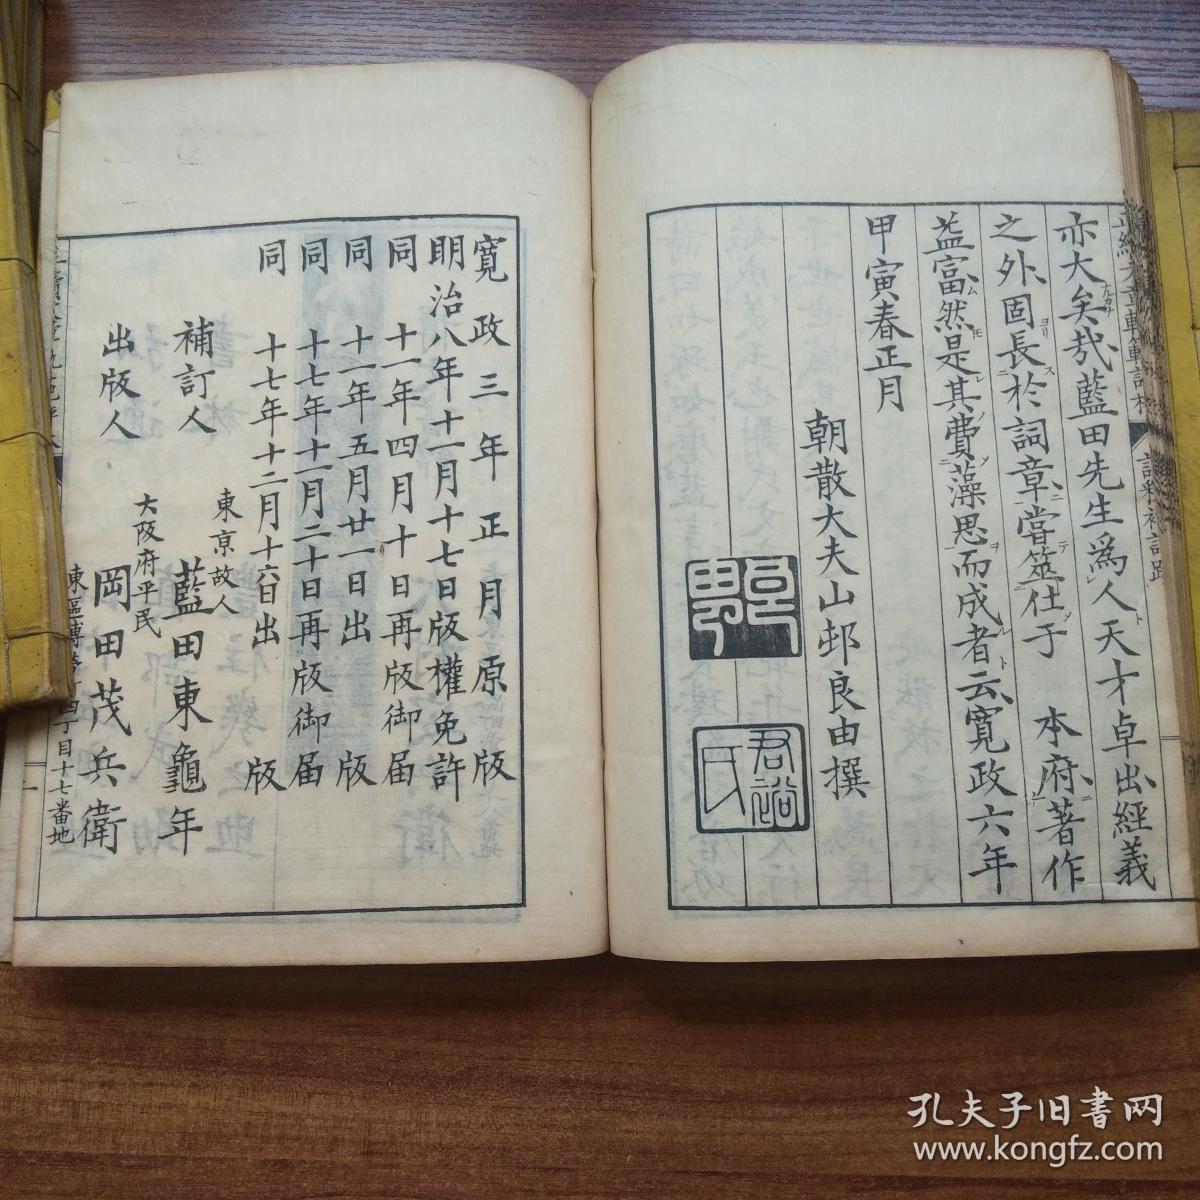 亦大矣哉藍田先生爲人天才卓出經義
之外固長於詞章嘗筮仕于 本府著作
益富然是其費藻思而成者云寬政六年
甲寅春正月
朝散大夫山邨良由撰
君裕
氏
寬政三年正月原版
明治八年十一月十七日版權免許
同 十一年四月十日再版御届
同 十一年五月廿一日出版
同 十七年十一月二十日再版御届
同 十七年十二月十六日出版
補訂人 東京故人 藍田東龜年
出版人 大阪府平民 岡田茂兵衛
孔夫子旧书网
www.kongfz.com